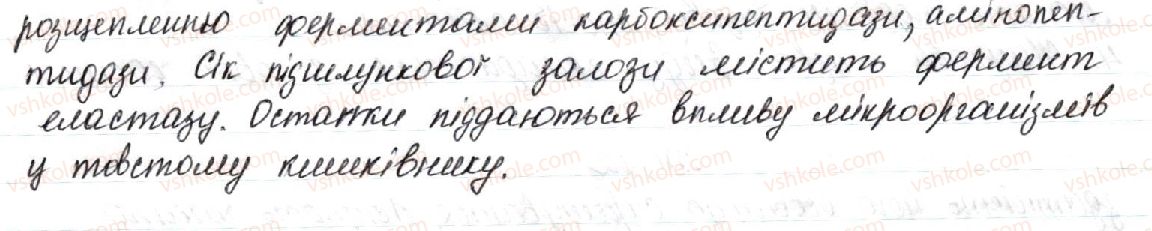 розщепленню ферментами карбоксипептидази, амінопеп-
тидази. Сік підшлункової залози містить фермент
еластазу. Остатки піддаються впливу мікроорганізмів
у товстому кишківнику.